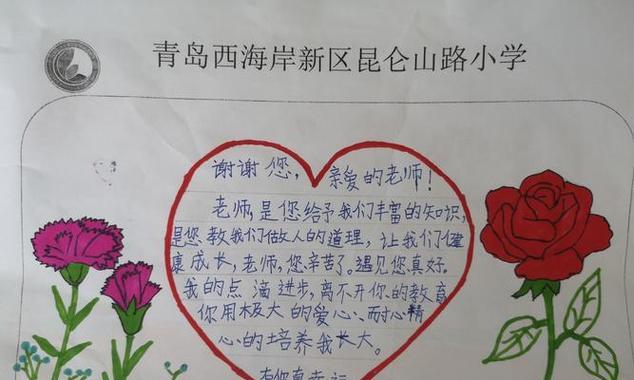 青岛西海岸新区昆仑山路小学
谢谢您，亲爱的老师！
老师，是您给予我们丰富的知识，
是您教我们做人的道理，让我们健
康成长，老师，您辛苦了，遇见您真好。
我的点滴进步，离不开您的教育
你用极大的爱心、耐心精
心的培养我长大。
有您真幸运